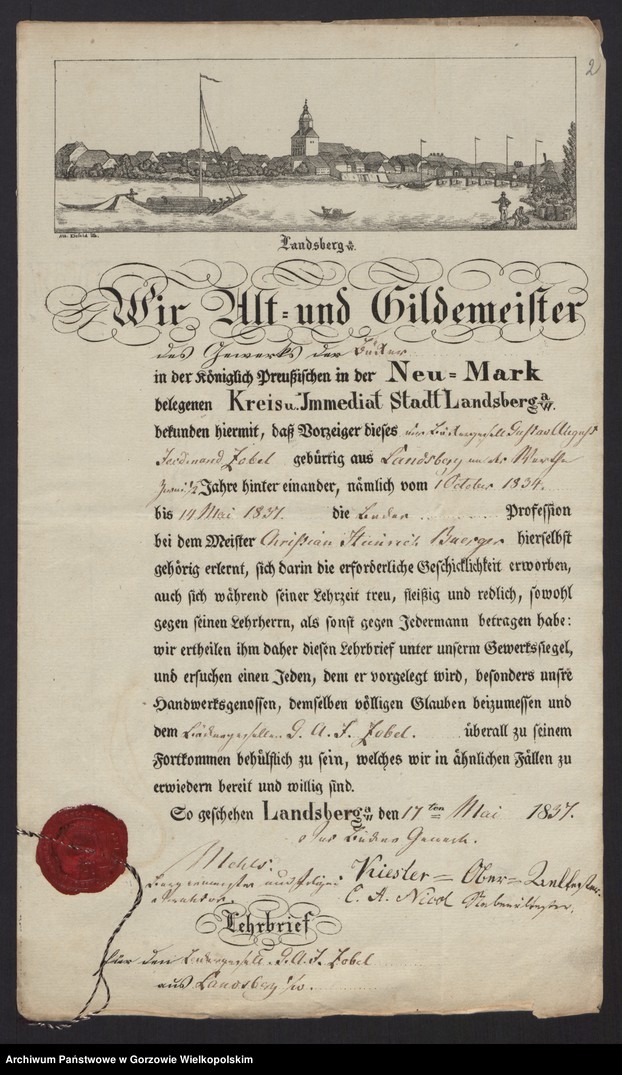 2
Landsberg a/W.
Wir Alt= und Gildemeister
des Gewerks der Bäcker
in der Königlich Preußischen in der Neu=Mark
belegenen Kreis u. Immediat Stadt Landsberg a/W.
bekunden hiermit, daß Vorzeiger dieses der Bäckergesell Gustav August
Ferdinand Zobel gebürtig aus Landsberg an der Warthe
Jahre hinter einander, nämlich vom 1 October 1834.
bis 14 Mai 1837. die Bäcker Profession
bei dem Meister Christian Heinrich Buerger hierselbst
gehörig erlernt, sich darin die erforderliche Geschicklichkeit erworben,
auch sich während seiner Lehrzeit treu, fleißig und redlich, sowohl
gegen seinen Lehrherrn, als sonst gegen Jedermann betragen habe:
wir ertheilen ihm daher diesen Lehrbrief unter unserm Gewerkssiegel,
und ersuchen einen Jeden, dem er vorgelegt wird, besonders unsre
Handwerksgenossen, demselben völligen Glauben beizumessen und
dem Bäckergesellen G. A. F. Zobel. überall zu seinem
Fortkommen behülflich zu sein, welches wir in ähnlichen Fällen zu
erwiedern bereit und willig sind.
So geschehen Landsberg a/W den 17ten Mai 1837.
Das Bäcker Gewerk.
Kiesler = Ober =
C. A. Nicol
Lehrbrief
für den Bäckergesell. G. A. F. Zobel
aus Landsberg a/W.
Archiwum Państwowe w Gorzowie Wielkopolskim